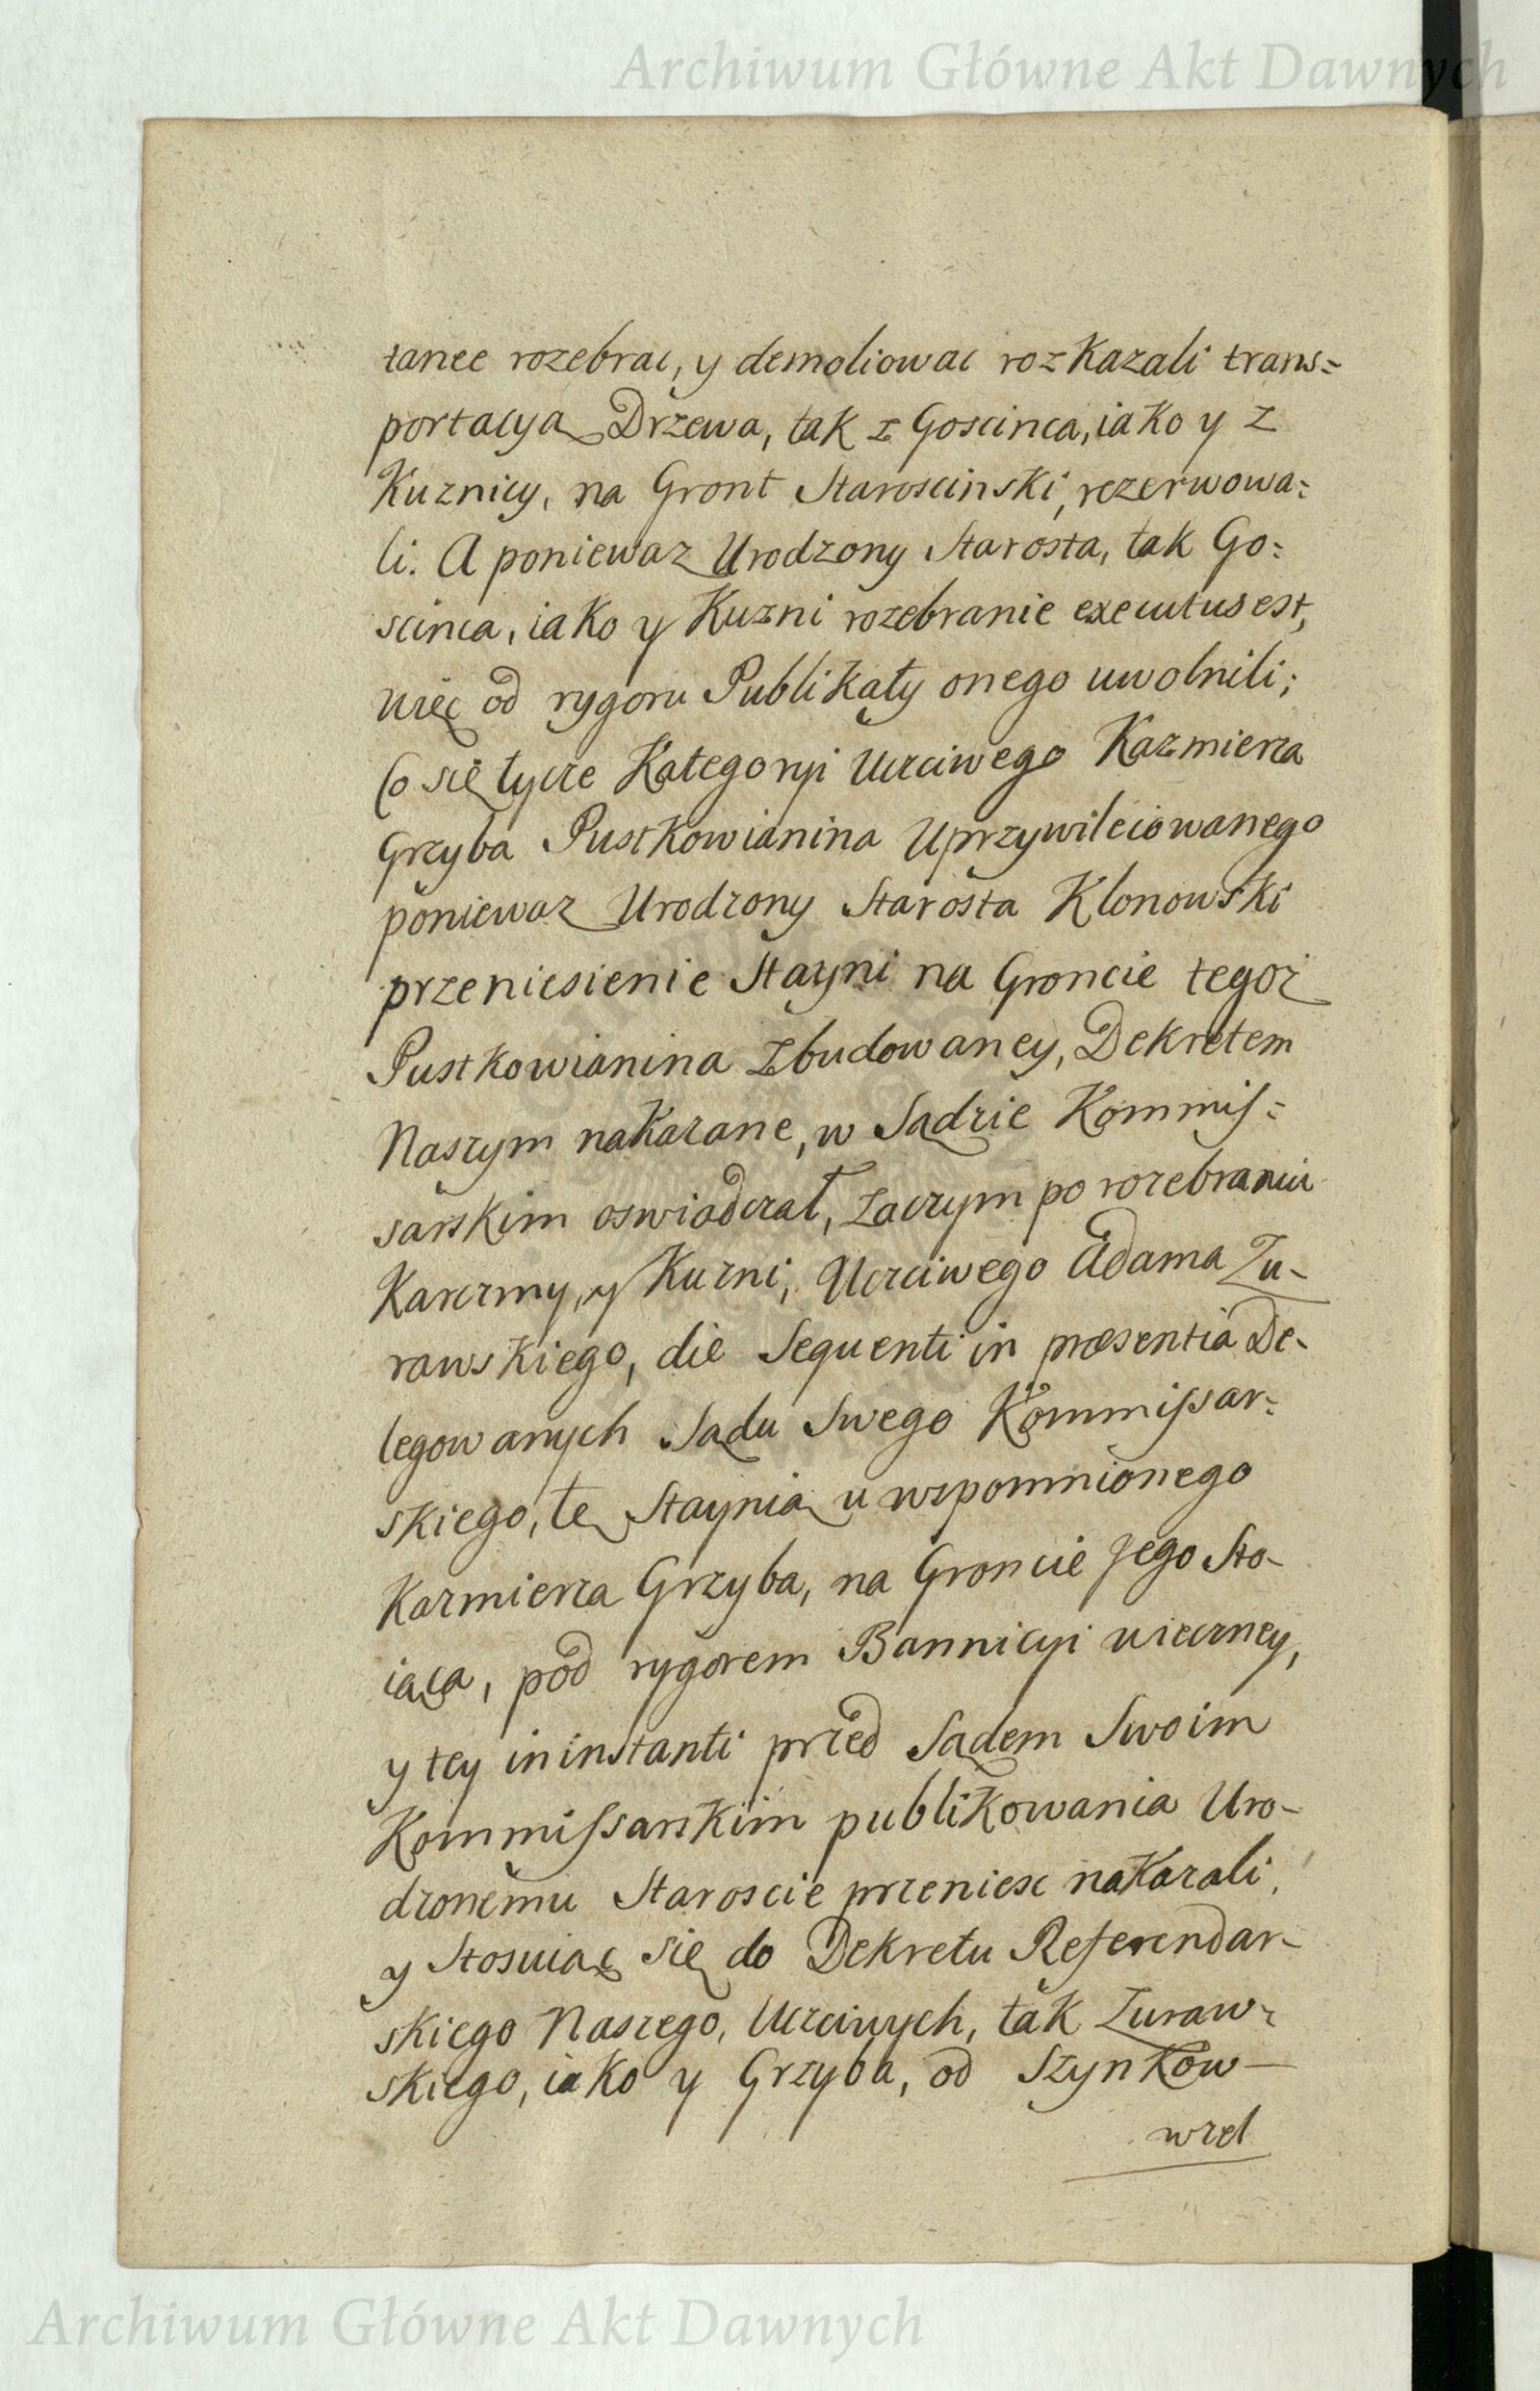 Archiwum Główne Akt Dawnych
tance rozebrac, y demoliowac rozkazali trans=
portacyą Drzewa, tak z Goscinca, iako y z
Kuznicy, na Gront Staroscinski, rezerwowa=
li. A poniewaz Urodzony Starosta, tak Go=
scinca, iako y Kuzni rozebranie executus est,
więc od rygoru Publikaty onego uwolnili;
Co się tycze Kategoryi Uczciwego Kazmierza
Grzyba Pustkowianina Uprzywileiowanego
poniewaz Urodzony Starosta Klonowski
przeniesienie Stayni na Groncie tegoż
Pustkowianina Zbudowaney, Dekretem
Naszym nakazane, w Sądzie Kommis=
sarskim oswiadczał, Zaczym po rozebraniu
Karczmy, y Kuzni, Uczciwego Adama Zu-
rawskiego, die Sequenti in præsentia De-
legowanych Sądu Swego Kommissar=
skiego, tę Staynią u wspomnionego
Kazmierza Grzyba, na Groncie Jego Sto-
iącą, pod rygorem Bannicyi wieczney,
y tey in instanti przed Sądem Swoim
Kommissarskim publikowania Uro-
dzonemu Staroscie przeniesc nakazali,
y Stosuiąc się do Dekretu Referendar-
skiego Naszego, Uczciwych, tak Zuraw=
skiego, iako y Grzyba, od Szynkow
wzel
Archiwum Główne Akt Dawnych